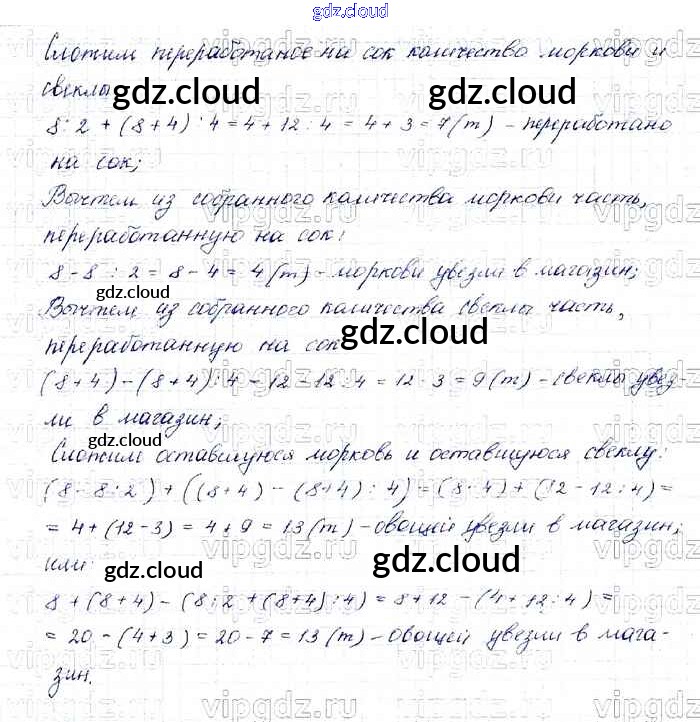 gdz.cloud
Сложим переработанное на сок количество моркови и
свеклы
gdz.cloud gdz.cloud
8 : 2 + (8+4) : 4 = 4 + 12 : 4 = 4 + 3 = 7 (т) – переработано
на сок;
Вычтем из собранного количества моркови часть,
переработанную на сок:
8 - 8 : 2 = 8 - 4 = 4 (т) – моркови увезли в магазин;
gdz.cloud
Вычтем из собранного количества свеклы часть,
gdz.cloud
переработанную на сок
(8+4) - (8+4) : 4 = 12 - 12 : 4 = 12 - 3 = 9 (т) – свеклы увез-
ли в магазин;
gdz.cloud
Сложим оставшуюся морковь и оставшуюся свеклу:
(8 - 8 : 2) + ((8+4) - (8+4) : 4) = (8 - 4) + (12 - 12 : 4) =
= 4 + (12 - 3) = 4 + 9 = 13 (т) – овощей увезли в магазин;
gdz.cloud
или:
gdz.cloud
8 + (8+4) - (8 : 2 + (8+4) : 4) = 8 + 12 - (4 + 12 : 4) =
= 20 - (4+3) = 20 - 7 = 13 (т) – овощей увезли в мага-
зин.
vipgdz.ru vipgdz.ru vipgdz.ru